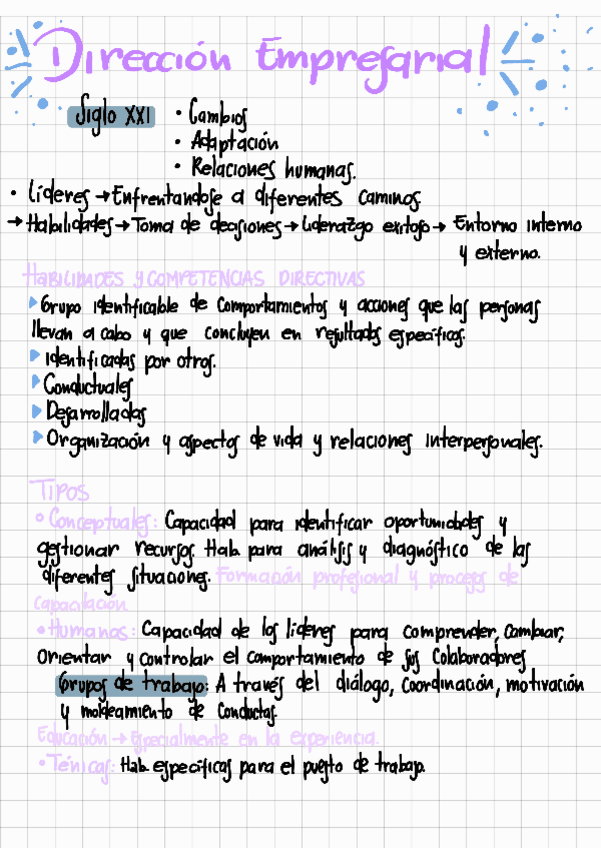 Dirección Empresarial
Siglo XXI • Cambios
• Adaptación
• Relaciones humanas.
• Líderes → Enfrentandose a diferentes caminos.
→ Habilidades → Toma de decisiones → Liderazgo exitoso → Entorno interno
y externo.
HABILIDADES Y COMPETENCIAS DIRECTIVAS
▸ Grupo identificable de comportamientos y acciones que las personas
llevan a cabo y que concluyen en resultados específicos.
▸ Identificadas por otros.
▸ Conductuales
▸ Desarrolladas
▸ Organización y aspectos de vida y relaciones interpersonales.
TIPOS
• Conceptuales: Capacidad para identificar oportunidades y
gestionar recursos Hab. para análisis y diagnóstico de las
diferentes situaciones. Formación profesional y procesos de
capacitación
• Humanas: Capacidad de los líderes para comprender, cambiar,
orientar y controlar el comportamiento de sus colaboradores
Grupos de trabajo: A través del diálogo, coordinación, motivación
y moldeamiento de conductas.
Educación → Especialmente en la experiencia.
• Ténicas: Hab. específicas para el puesto de trabajo.